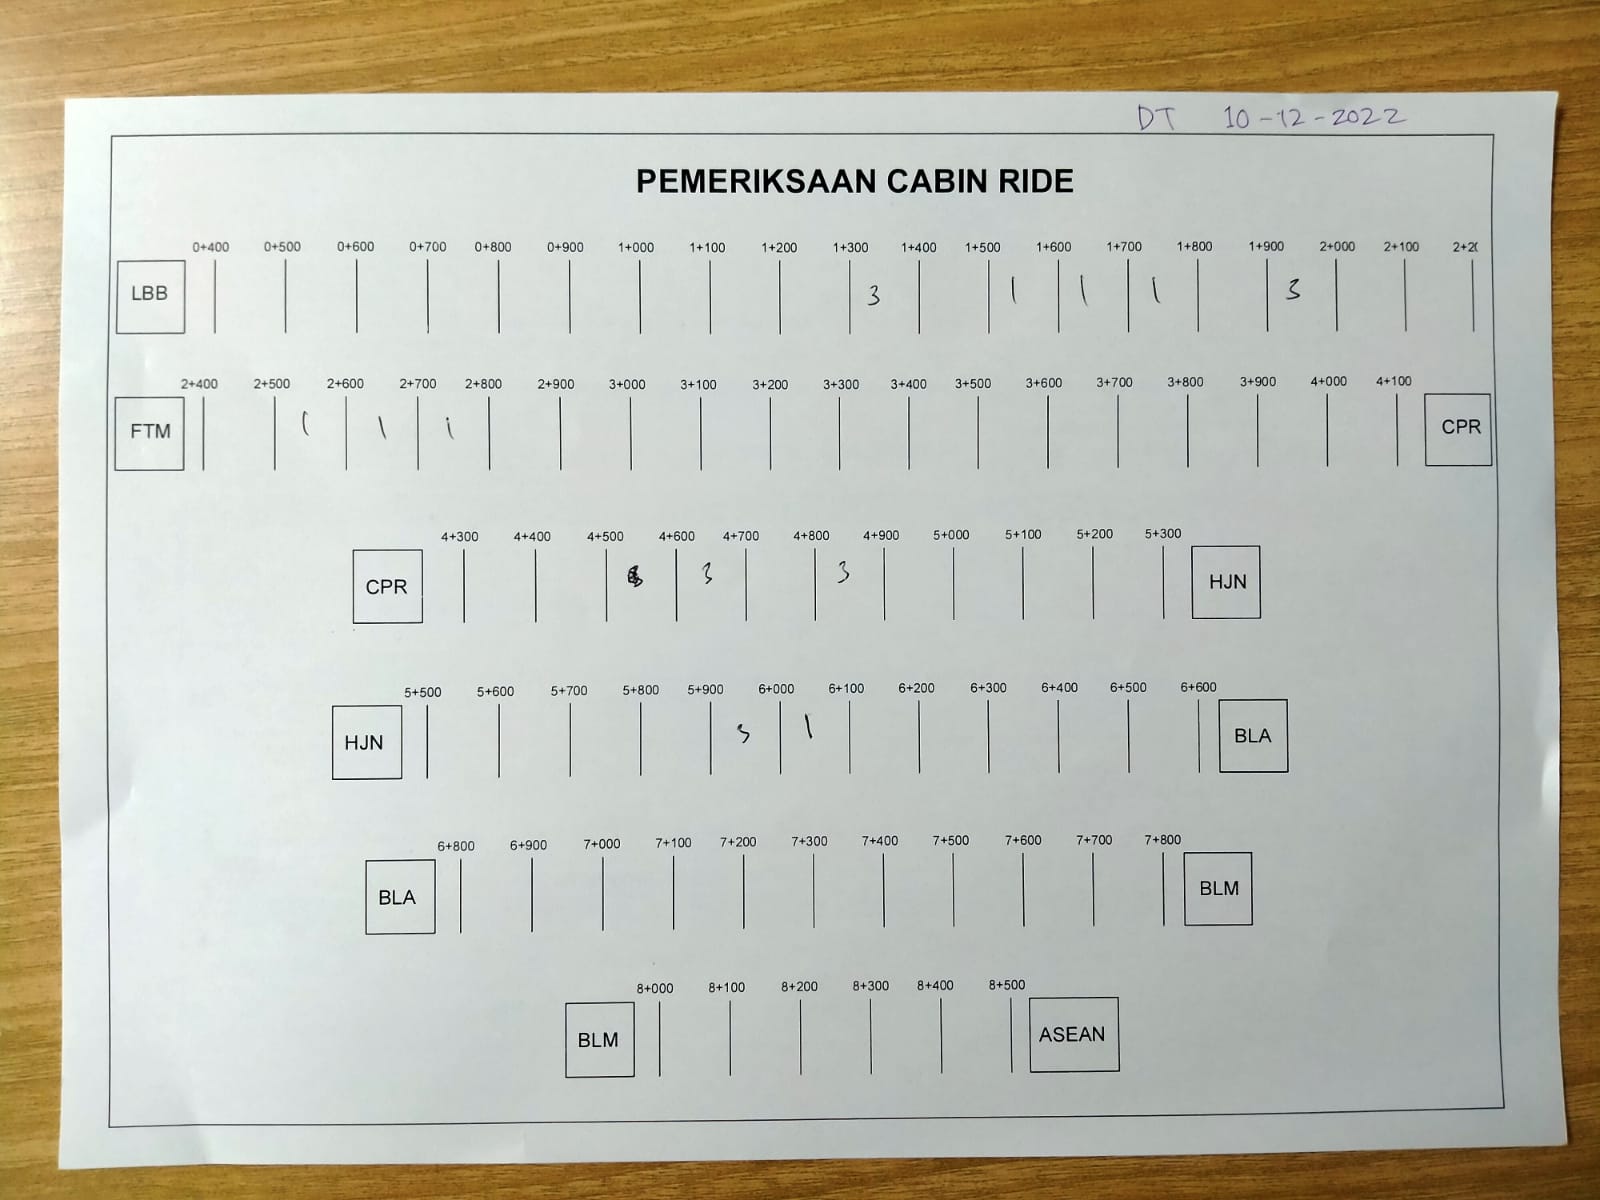 DT 10-12-2022
PEMERIKSAAN CABIN RIDE
0+400 0+500 0+600 0+700 0+800 0+900 1+000 1+100 1+200 1+300 1+400 1+500 1+600 1+700 1+800 1+900 2+000 2+100 2+20
LBB 3 1 1 1 3
2+400 2+500 2+600 2+700 2+800 2+900 3+000 3+100 3+200 3+300 3+400 3+500 3+600 3+700 3+800 3+900 4+000 4+100
FTM 1 1 1 CPR
4+300 4+400 4+500 4+600 4+700 4+800 4+900 5+000 5+100 5+200 5+300
CPR 3 3 HJN
5+500 5+600 5+700 5+800 5+900 6+000 6+100 6+200 6+300 6+400 6+500 6+600
HJN 1 BLA
6+800 6+900 7+000 7+100 7+200 7+300 7+400 7+500 7+600 7+700 7+800
BLA BLM
8+000 8+100 8+200 8+300 8+400 8+500
BLM ASEAN